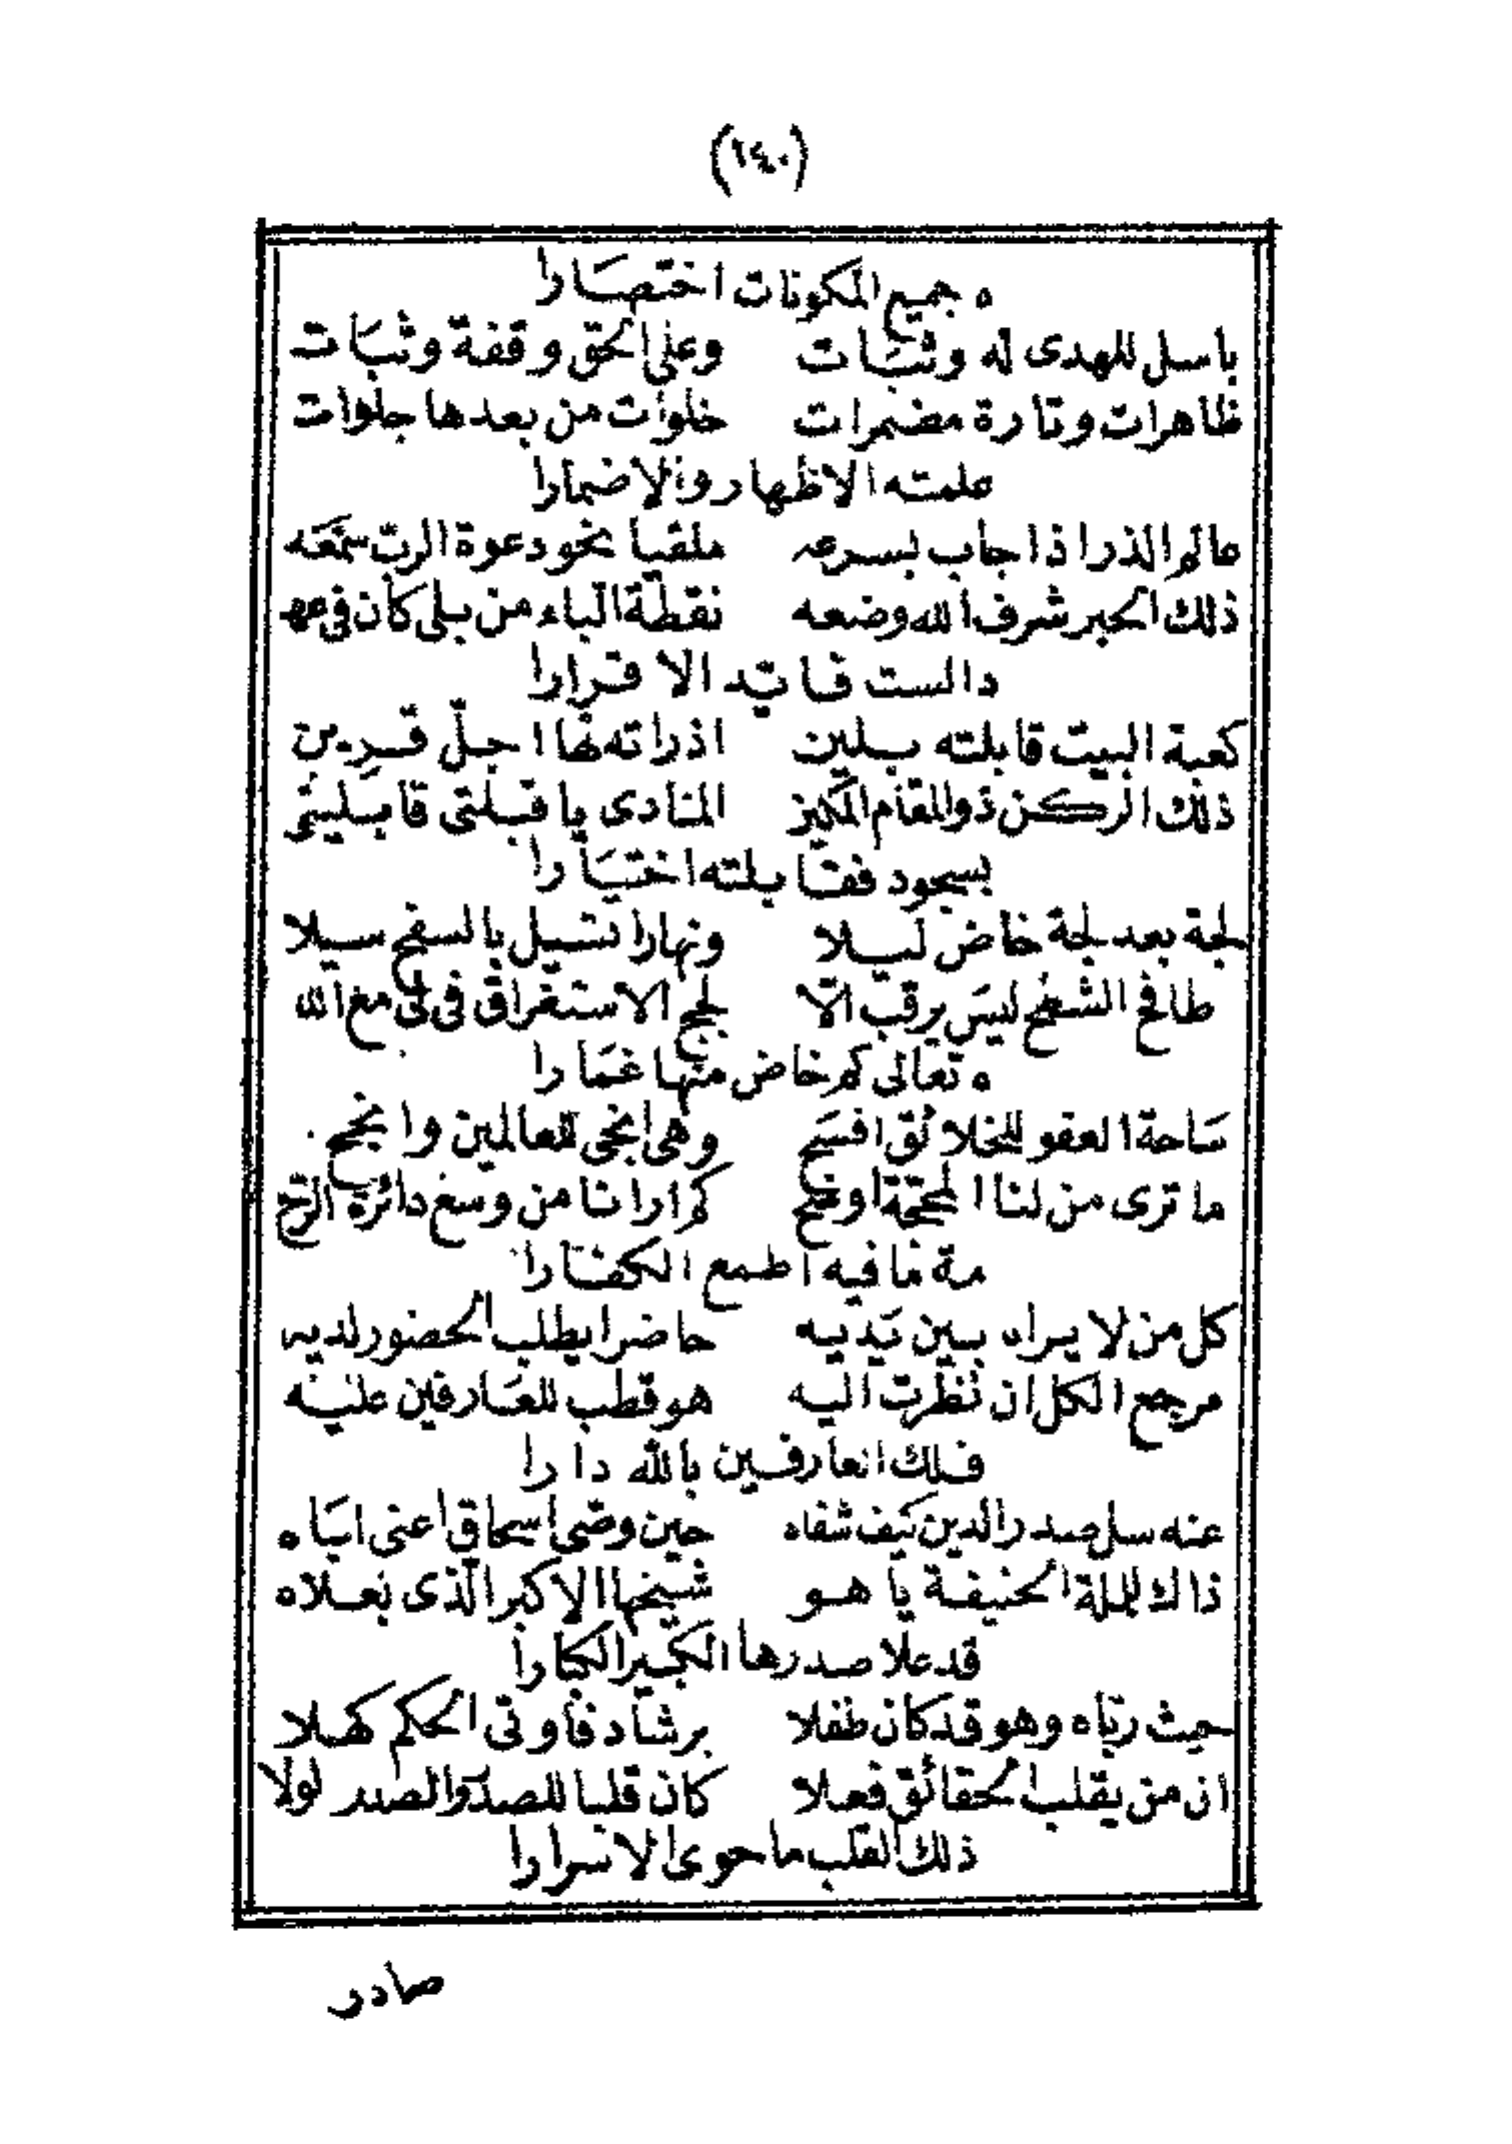 (١٤٠)
ه جميع المكونات اختصارا
باسل للهدى له وثبات وعلى الحق وقفة وثبات
ظاهرات وتارة مضمرات خلوات من بعدها جلوات
علمته الاظهار والاضمارا
عالم الذر اذ اجاب بسرعه ملقيا نحو دعوة الرب سمعه
ذلك الحبر شرف الله وضعه نقطة الباء من بلى كان فى عهـ
د الست فاتيد الاقرارا
كعبة البيت قابلته بلين اذ راته لها اجل قرين
ذلك الركن ذو المقام المكين المنادى يا قبلتى قابلينى
بسجود فقابلته اختيارا
لجة بعد لجة خاض ليلا ونهارا تسيل بالسفح سيلا
طافح الشفح ليس يرقب الّا لجج الاستغراق فى لى مع الله
ه تعالى كم خاض منها غمارا
ساحة العفو للخلائق افسح وهى انجى للعالمين وانجح
ما ترى من لنا المحجة اوضح كم ارانا من وسع دائرة الرّحـ
مة ما فيه اطمع الكفارا
كل من لا يراه بين يديه حاضرا يطلب الحضور لديه
مرجع الكل ان نظرت اليه هو قطب للعارفين عليه
فلك العارفين بالله دارا
عنه سل صدر الدين كيف شفاه حين وصّى اسحاق اعنى اباه
ذاك للملة الحنيفة يا هو شيخها الاكبر الّذى بعلاه
قد علا صدرها الكبير الكبارا
حيث ربّاه وهو قد كان طفلا برشاد فأوتى الحكم كهلا
ان من يقلب الحقائق فعلا كان قلبا للصدر والصدر لولا
ذلك القلب ما حوى الاسرارا
صادر